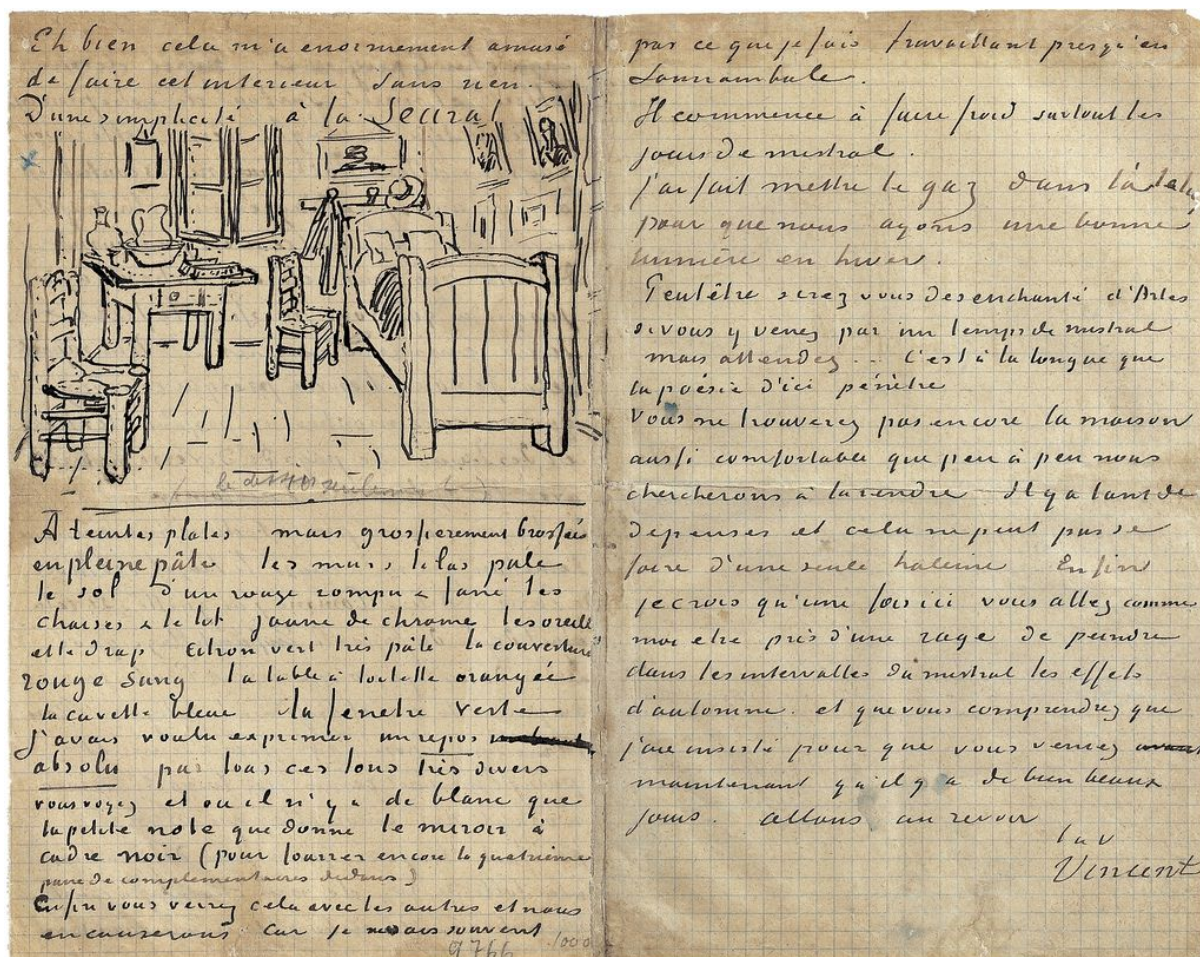 Eh bien cela m'a enormement amusé
de faire cet interieur sans rien.
D'une simplicité à la Seurat
le dessin seulement
À teintes plates mais grossierement brossées
en pleine pâte les murs lilas pale
le sol d'un rouge rompu & fané les
chaises & le lit jaune de chrome les oreill
et le drap citron vert très pâle la couverture
rouge sang la table à toilette orangée
la cuvette bleue la fenetre verte
J'avais voulu exprimer un repos
absolu par tous ces tons très divers
vous voyez et où il n'y a de blanc que
la petite note que donne le miroir à
cadre noir (pour fourrer encore la quatrième
paire de complementaires dedans)
Enfin vous verrez cela avec les autres et nous
en causerons car je ne sais souvent
9766 1000
par ce que je fais travaillant presqu'en
somnambule.
Il commence à faire froid surtout les
jours de mistral.
J'ai fait mettre le gaz dans l'atelier
pour que nous ayons une bonne
lumière en hiver.
Peutêtre serez vous desenchanté d'Arles
si vous y venez par un temps de mistral
mais attendez.. C'est à la longue que
la poésie d'ici pénètre
Vous ne trouverez pas encore la maison
aussi comfortable que peu à peu nous
chercherons à la rendre Il y a tant de
depenses et cela ne peut pas se
faire d'une seule haleine Enfin
je crois qu'une fois ici vous allez comme
moi etre pris d'une rage de peindre
dans les intervalles du mistral les effets
d'automne. et que vous comprendrez que
j'aie insisté pour que vous veniez
maintenant qu'il y a de bien beaux
jours. allons au revoir
t. à v
Vincent